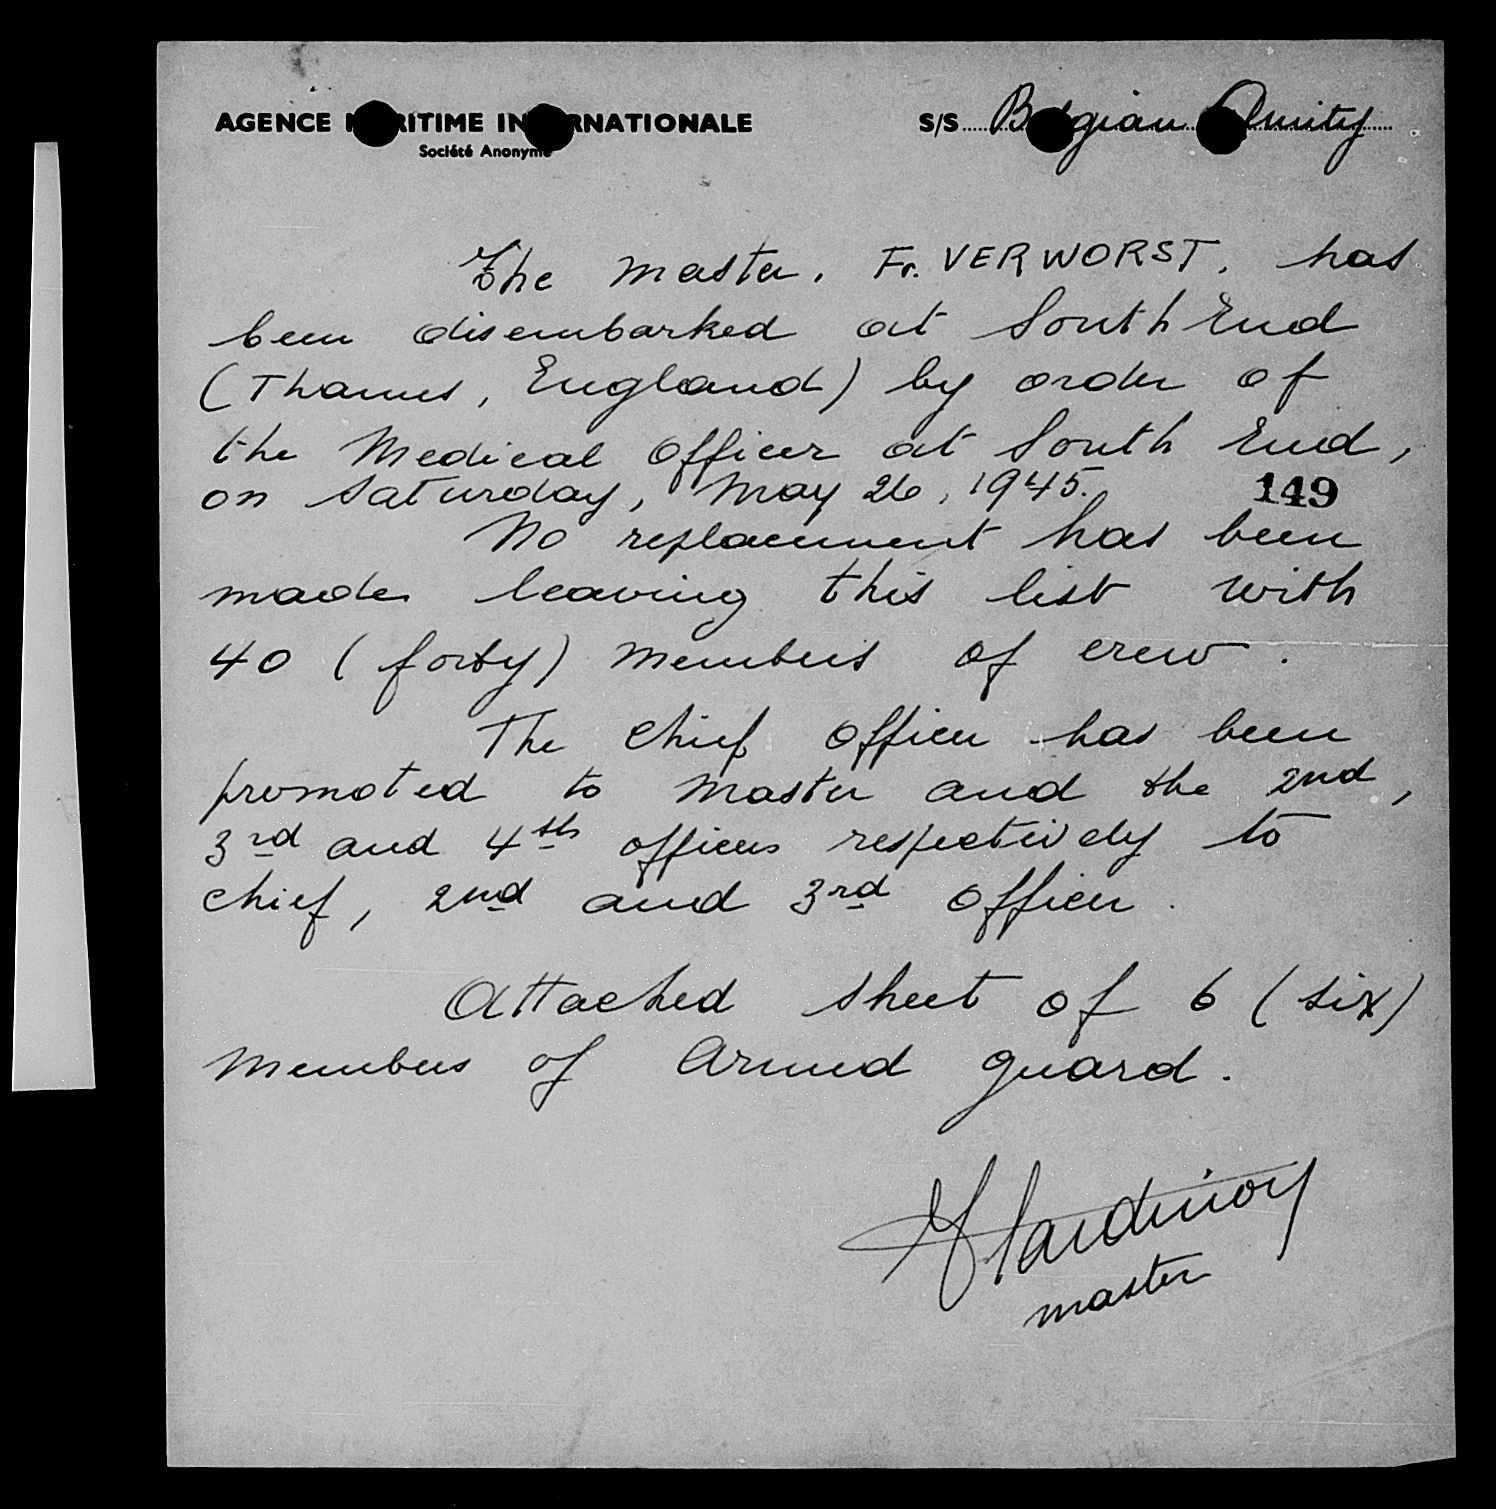 AGENCE MARITIME INTERNATIONALE
Société Anonyme
S/S Belgian Amity
The Master, Fr. VERWORST, has
been disembarked at South End
(Thames, England) by order of
the Medical Officer at South End,
on Saturday, May 26, 1945.
149
No replacement has been
made leaving this list with
40 (forty) members of crew.
The Chief Officer has been
promoted to Master and the 2nd,
3rd and 4th officers respectively to
chief, 2nd and 3rd officer.
Attached sheet of 6 (six)
members of Armed guard.
master